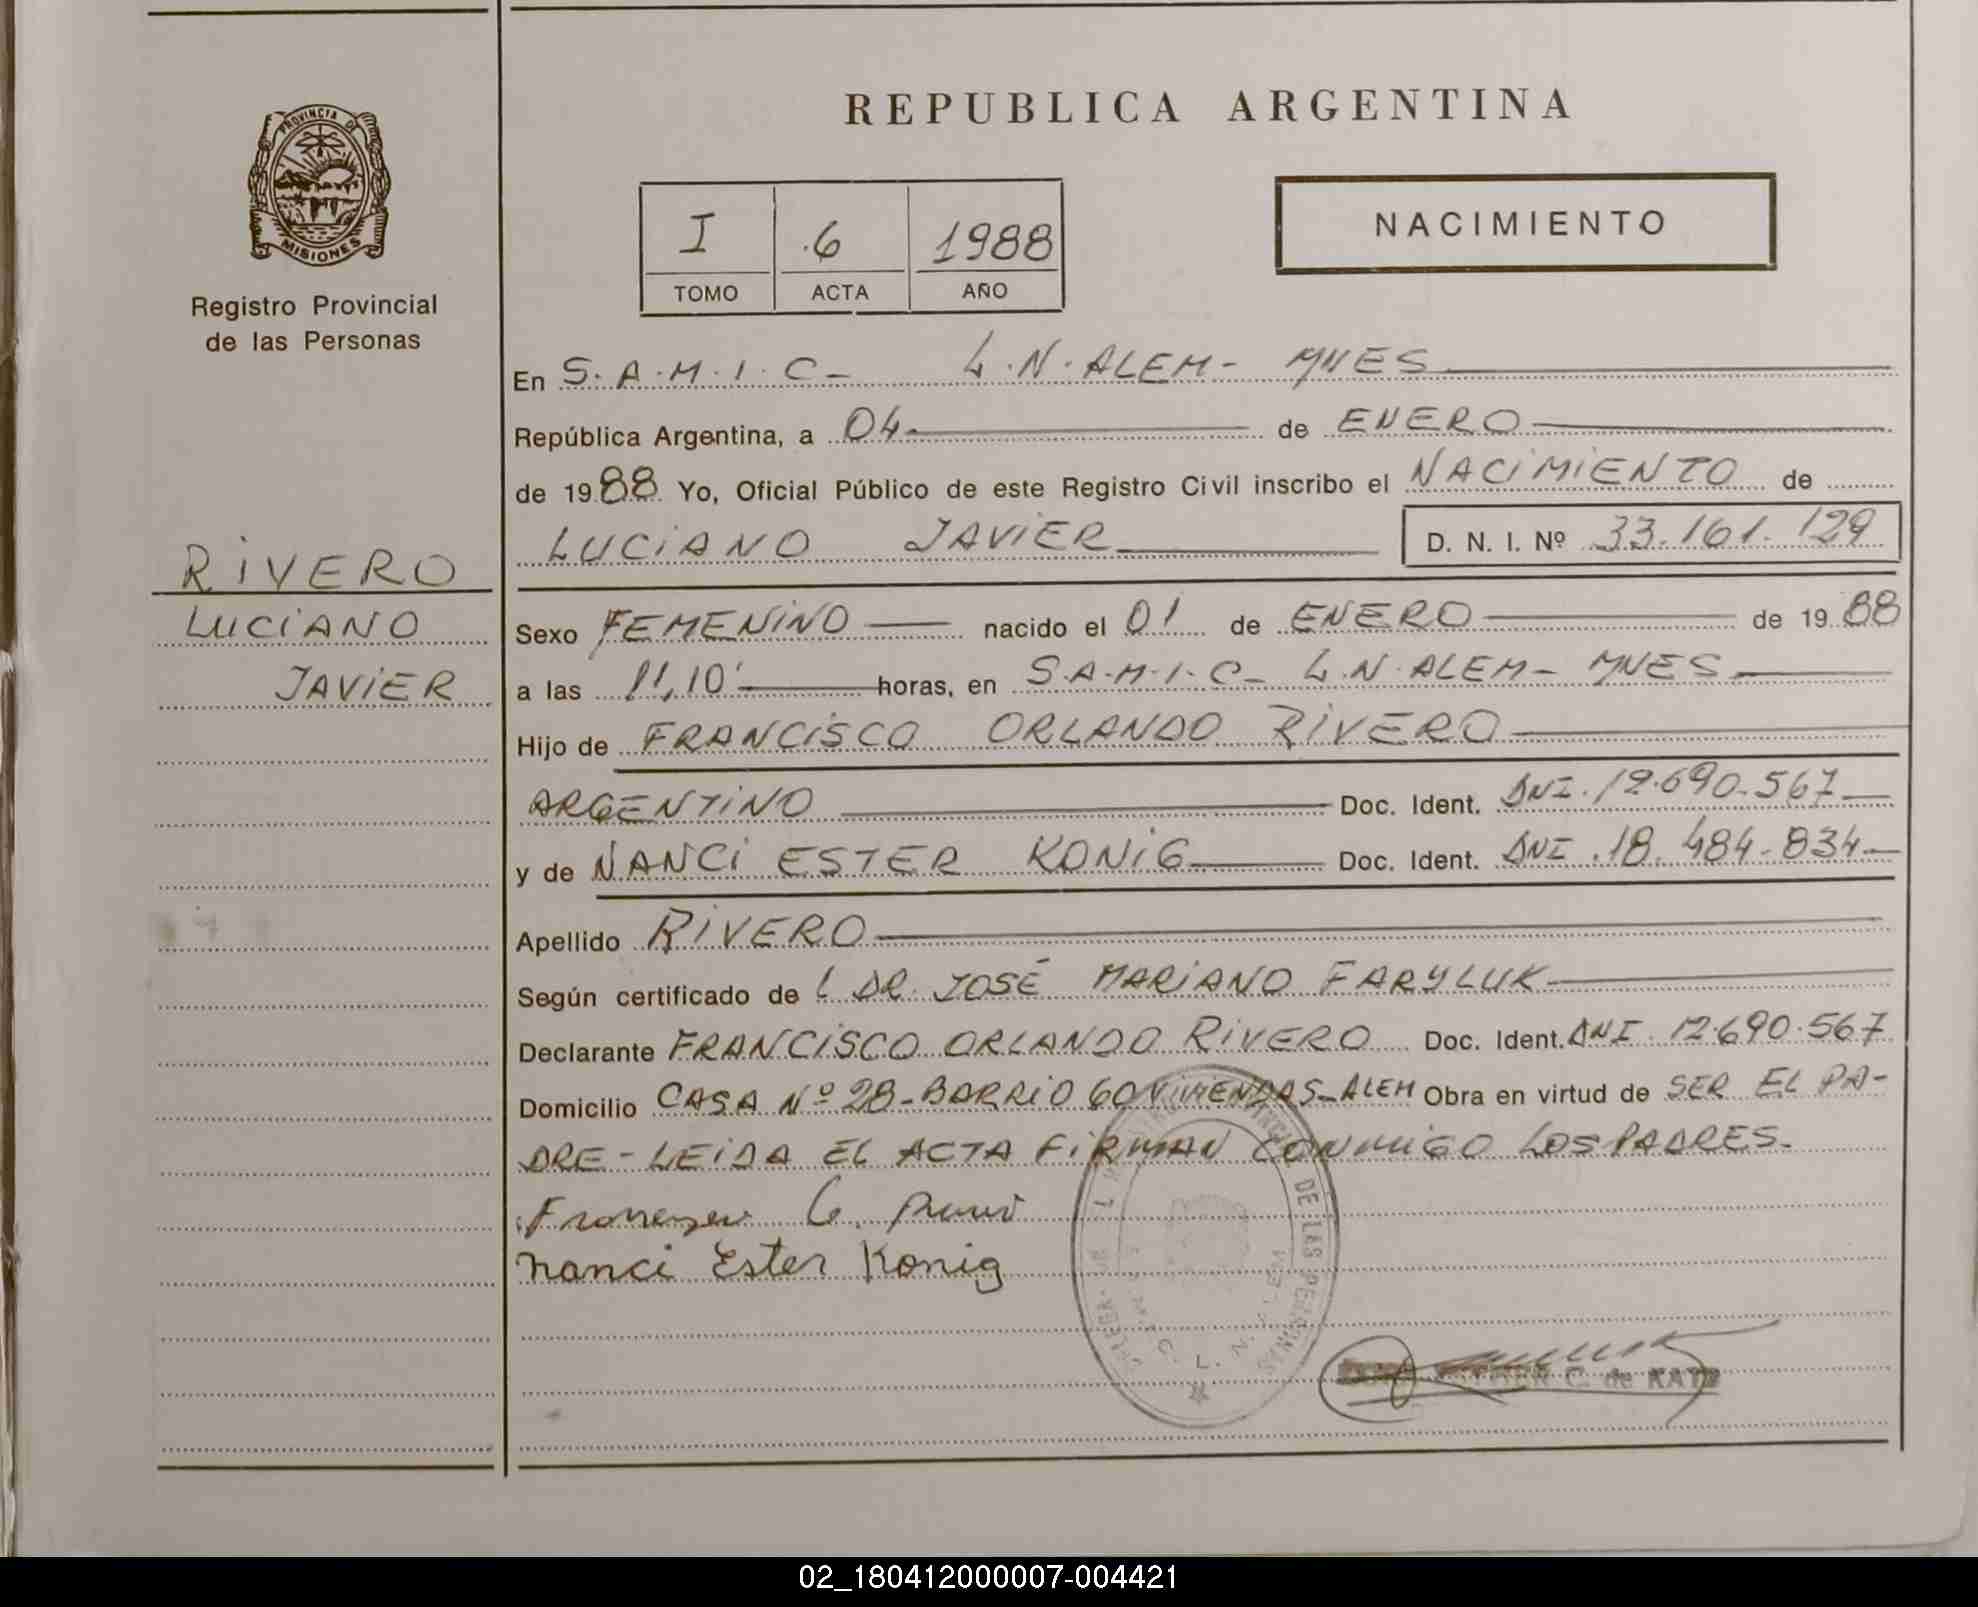 REPUBLICA ARGENTINA
PROVINCIA DE
MISIONES
Registro Provincial
de las Personas
RIVERO
LUCIANO
JAVIER
I .6 1988
TOMO ACTA AÑO
NACIMIENTO
En S.A.M.I.C- L.N.ALEM- MNES
República Argentina, a 04 de ENERO
de 1988 Yo, Oficial Público de este Registro Civil inscribo el NACIMIENTO de
LUCIANO JAVIER D. N. I. Nº 33.161.129
Sexo FEMENINO nacido el 01 de ENERO de 1988
a las 11,10' horas, en S.A.M.I.C- L.N.ALEM- MNES
Hijo de FRANCISCO ORLANDO RIVERO
ARGENTINO Doc. Ident. DNI.12.690.567
y de NANCI ESTER KONIG Doc. Ident. DNI.18.484.834
Apellido RIVERO
Según certificado de L DR. JOSÉ MARIANO FARYLUK
Declarante FRANCISCO ORLANDO RIVERO Doc. Ident. DNI.12.690.567
Domicilio CASA Nº 28-BARRIO 60 VIVIENDAS-ALEM Obra en virtud de SER EL PA-
DRE-LEIDA EL ACTA FIRMAN CONMIGO LOS PADRES.
Nanci Ester Konig
DE LAS PERSONAS
C. de KATZ
02_180412000007-004421